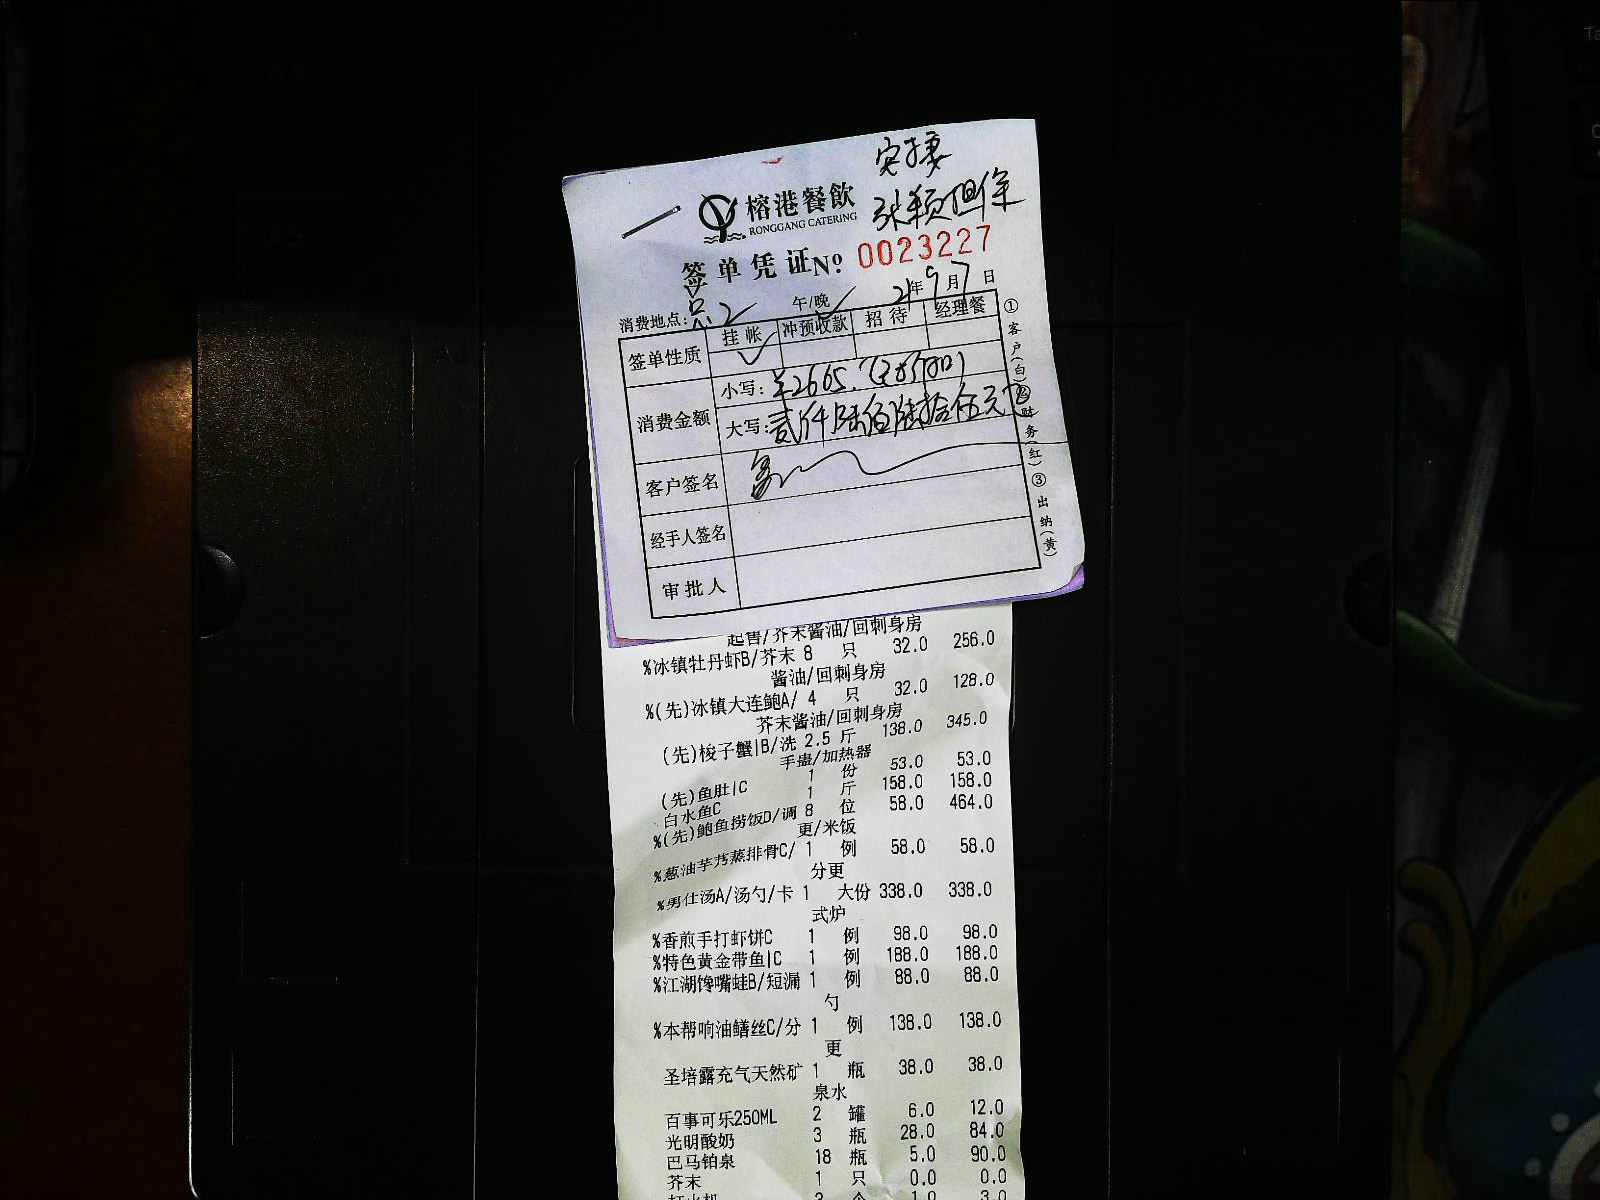 张颖担保
榕港餐飲
RONGGANG CATERING
签单凭证 No 0023227
消费地点: 总2 午/晚 21年9月7日
签单性质 挂帐 冲预收款 招待 经理餐
消费金额 小写: ¥2665.
大写: 贰仟陆佰陆拾伍元
客户签名
经手人签名
审批人
①客户(白)②财务(红)③出纳(黄)
起售/芥末酱油/回刺身房
%冰镇牡丹虾B/芥末 8 只 32.0 256.0
酱油/回刺身房
%(先)冰镇大连鲍A/ 4 只 32.0 128.0
芥末酱油/回刺身房
(先)梭子蟹|B/洗 2.5 斤 138.0 345.0
手盅/加热器
(先)鱼肚|C 1 份 53.0 53.0
白水鱼C 1 斤 158.0 158.0
%(先)鲍鱼捞饭D/调 8 位 58.0 464.0
更/米饭
%葱油芋艿蒸排骨C/ 1 例 58.0 58.0
分更
%男仕汤A/汤勺/卡 1 大份 338.0 338.0
式炉
%香煎手打虾饼C 1 例 98.0 98.0
%特色黄金带鱼|C 1 例 188.0 188.0
%江湖馋嘴蛙B/短漏 1 例 88.0 88.0
勺
%本帮响油鳝丝C/分 1 例 138.0 138.0
更
圣培露充气天然矿 1 瓶 38.0 38.0
泉水
百事可乐250ML 2 罐 6.0 12.0
光明酸奶 3 瓶 28.0 84.0
巴马铂泉 18 瓶 5.0 90.0
芥末 1 只 0.0 0.0
打火机 3 个 1.0 3.0